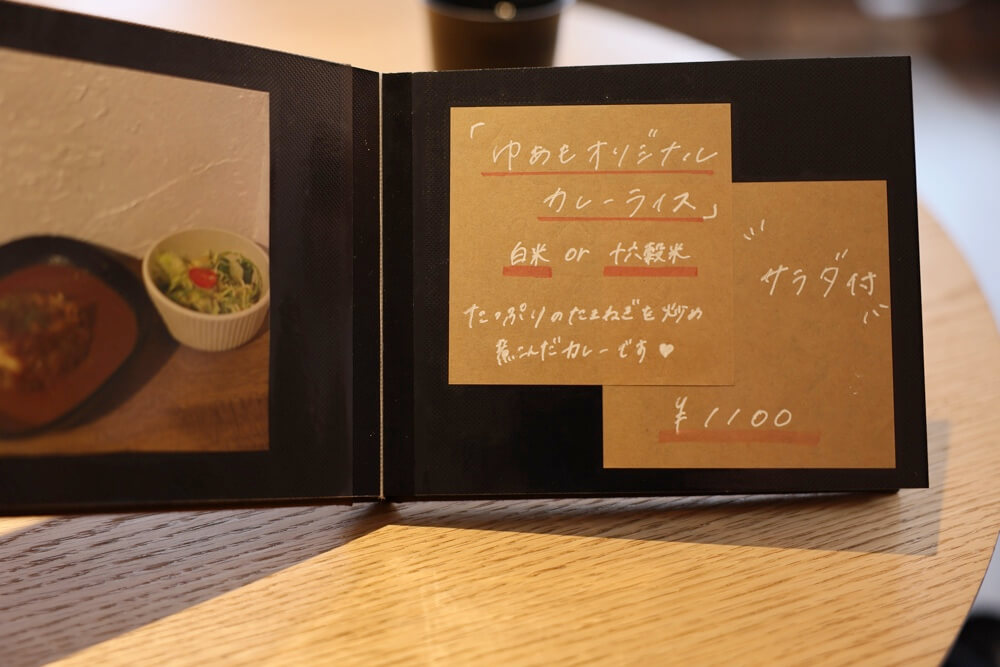 「ゆあもオリジナル
カレーライス」
白米 or 十六穀米
たっぷりのたまねぎを炒め
煮こんだカレーです♥
サラダ付
¥1100